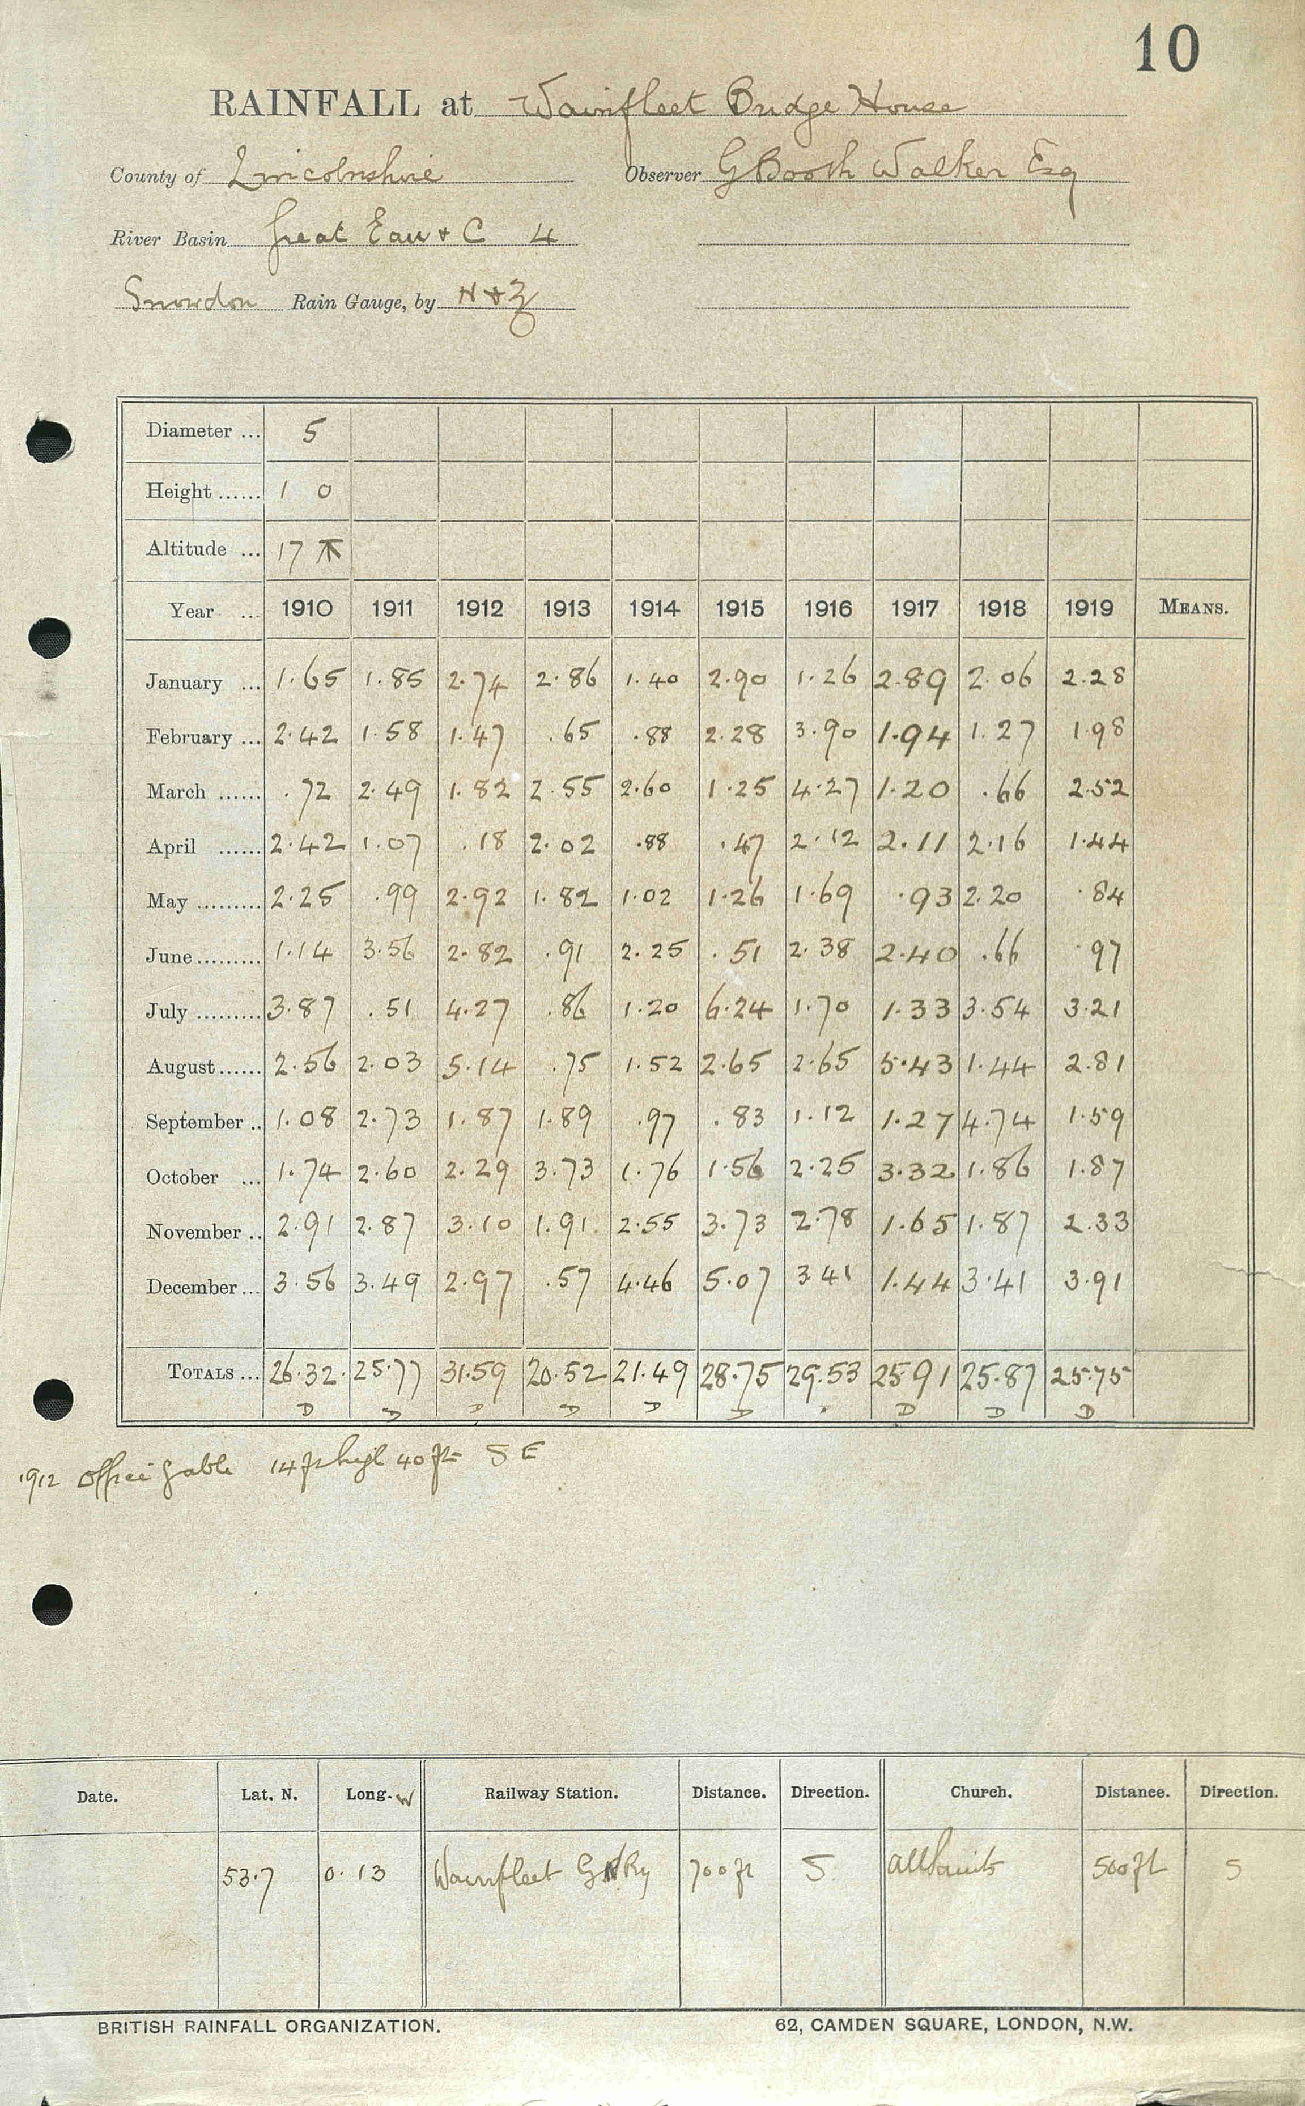 10
RAINFALL at Wainfleet Bridge House
County of Lincolnshire Observer G Booth Walker Esq
River Basin Great Eau & C 4
Snowdon Rain Gauge, by N & Z
Diameter ... 5
Height ...... 1 0
Altitude ... 17
Year ... 1910 1911 1912 1913 1914 1915 1916 1917 1918 1919 MEANS.
January ... 1.65 1.85 2.74 2.86 1.40 2.90 1.26 2.89 2.06 2.28
February ... 2.42 1.58 1.47 .65 .88 2.28 3.90 1.94 1.27 1.98
March ...... .72 2.49 1.82 2.55 2.60 1.25 4.27 1.20 .66 2.52
April ...... 2.42 1.07 .18 2.02 .88 .47 2.12 2.11 2.16 1.44
May ......... 2.25 .99 2.92 1.82 1.02 1.26 1.69 .93 2.20 .84
June ......... 1.14 3.56 2.82 .91 2.25 .51 2.38 2.40 .66 .97
July ......... 3.87 .51 4.27 .86 1.20 6.24 1.70 1.33 3.54 3.21
August ...... 2.56 2.03 5.14 .75 1.52 2.65 2.65 5.43 1.44 2.81
September .. 1.08 2.73 1.87 1.89 .97 .83 1.12 1.27 4.74 1.59
October ... 1.74 2.60 2.29 3.73 1.76 1.56 2.25 3.32 1.86 1.87
November .. 2.91 2.87 3.10 1.91 2.55 3.73 2.78 1.65 1.87 2.33
December ... 3.56 3.49 2.97 .57 4.46 5.07 3.41 1.44 3.41 3.91
TOTALS ... 26.32 25.77 31.59 20.52 21.49 28.75 29.53 25.91 25.87 25.75
D D D D D D D D D
1912 Office gable 14 ft high 40 ft SE
Date. Lat. N. Long. W Railway Station. Distance. Direction. Church. Distance. Direction.
53.7 0.13 Wainfleet GNRy 700 ft S All Saints 500 ft S
BRITISH RAINFALL ORGANIZATION. 62, CAMDEN SQUARE, LONDON, N.W.